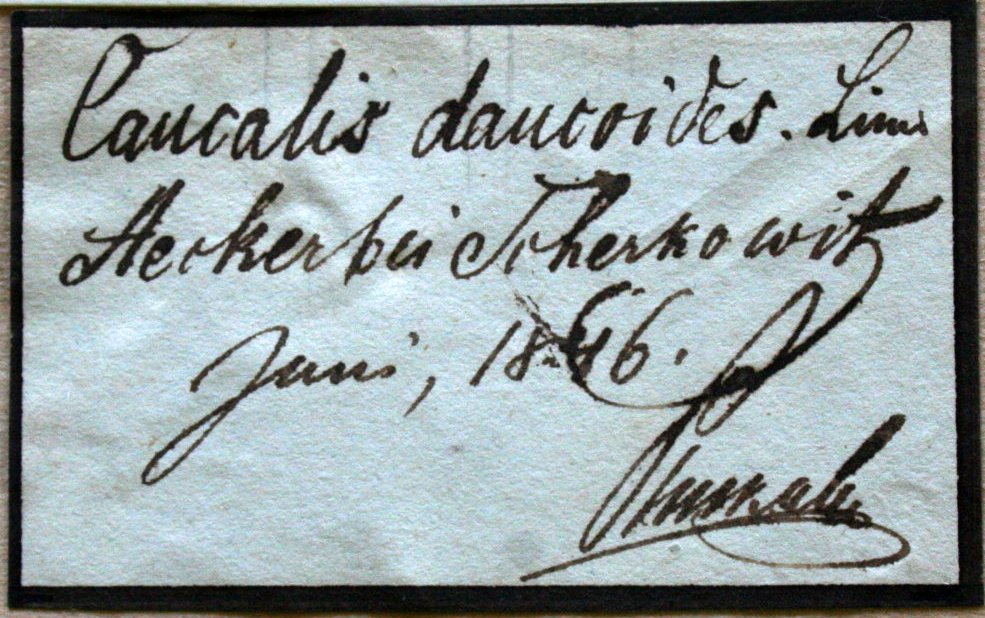 Caucalis daucoides. Linn
Aecker bei Tcherkowit
Juni, 1846.